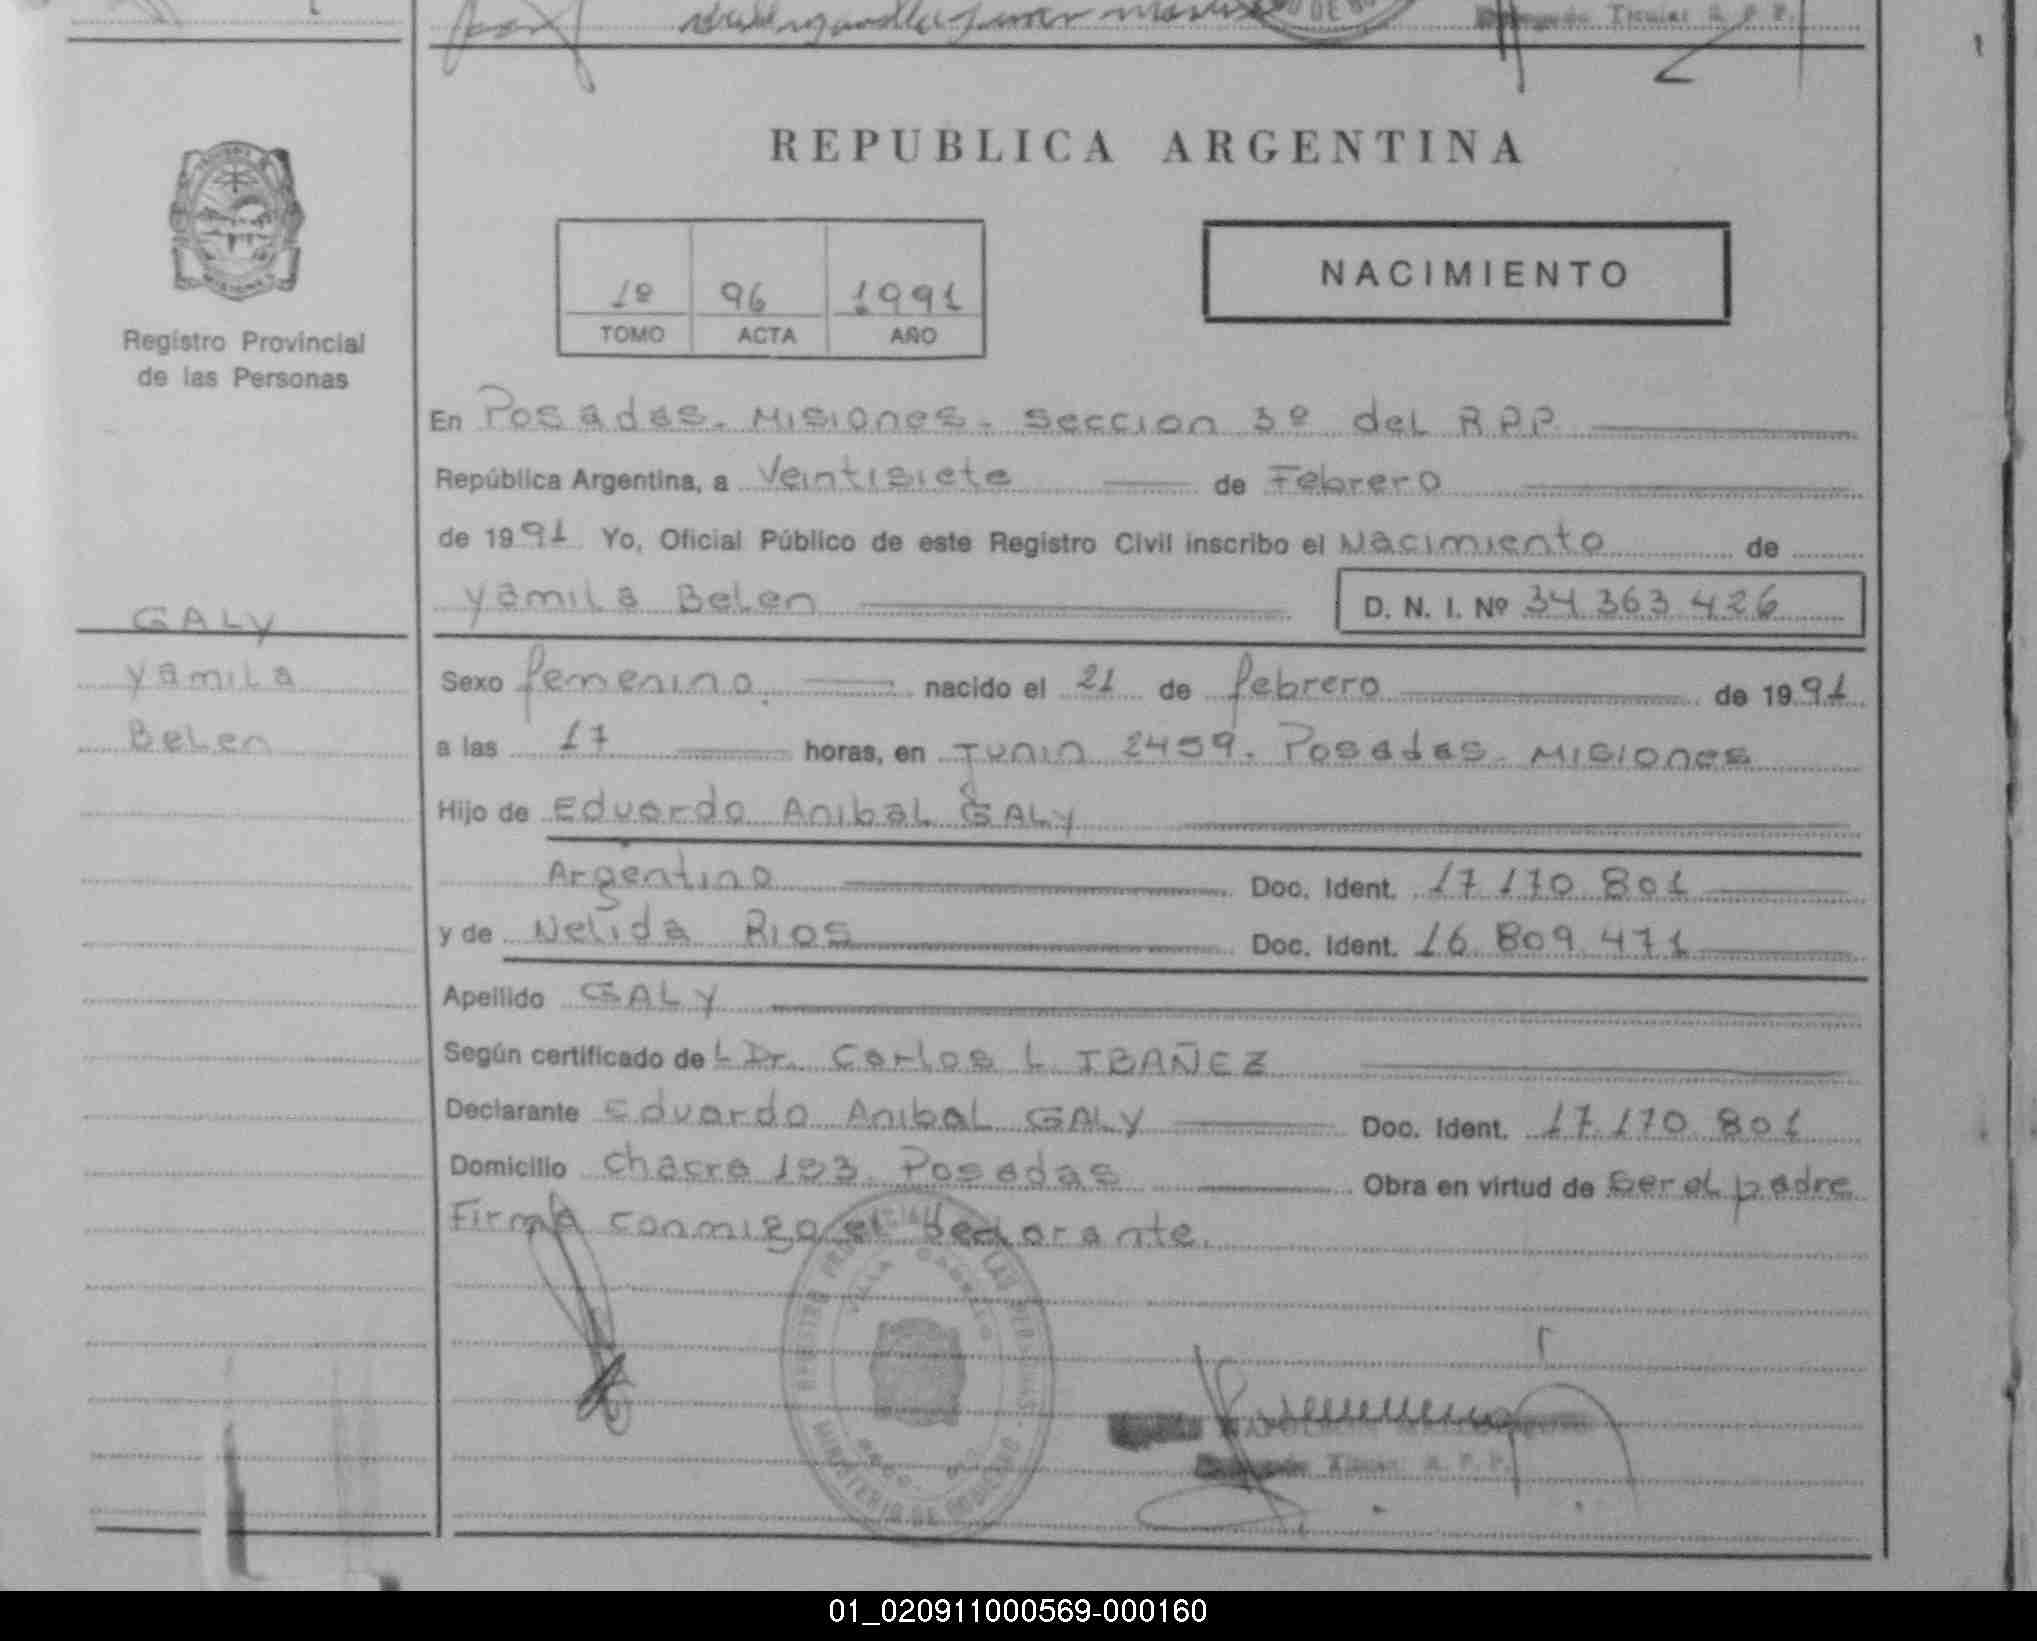 REPUBLICA ARGENTINA
Registro Provincial
de las Personas
1º 96 1991
TOMO ACTA AÑO
NACIMIENTO
En Posadas. Misiones. Seccion 3º del R.P.P.
República Argentina, a Veintisiete de Febrero
de 1991 Yo, Oficial Público de este Registro Civil inscribo el Nacimiento de
Yamila Belen D. N. I. Nº 34.363.426
GALY
Yamila
Belen
Sexo femenino. nacido el 21 de febrero de 1991
a las 17 horas, en Junin 2459. Posadas. Misiones
Hijo de Eduardo Anibal GALY
Argentino Doc. Ident. 17.170.801
y de Nelida Rios Doc. Ident. 16.809.471
Apellido GALY
Según certificado del Dr. Carlos L. IBAÑEZ
Declarante Eduardo Anibal GALY Doc. Ident. 17.170.801
Domicilio chacra 183. Posadas Obra en virtud de ser el padre
Firma conmigo el declarante.
REGISTRO PROVINCIAL DE LAS PERSONAS
MINISTERIO DE GOBIERNO
Titular R. P. P.
01_020911000569-000160